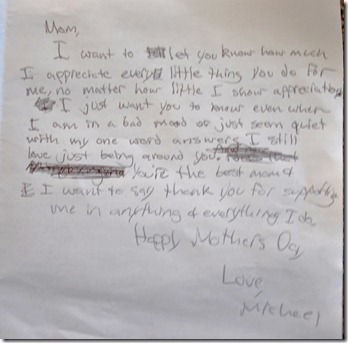 Mom,
I want to let you know how much
I appreciate every little thing you do for
me, no matter how little I show appreciation
I just want you to know even when
I am in a bad mood or just seem quiet
with my one word answers I still
love just being around you.
You're the best mom &
I want to say thank you for supporting
me in anything & everything I do
Happy Mothers Day
Love,
Micheel